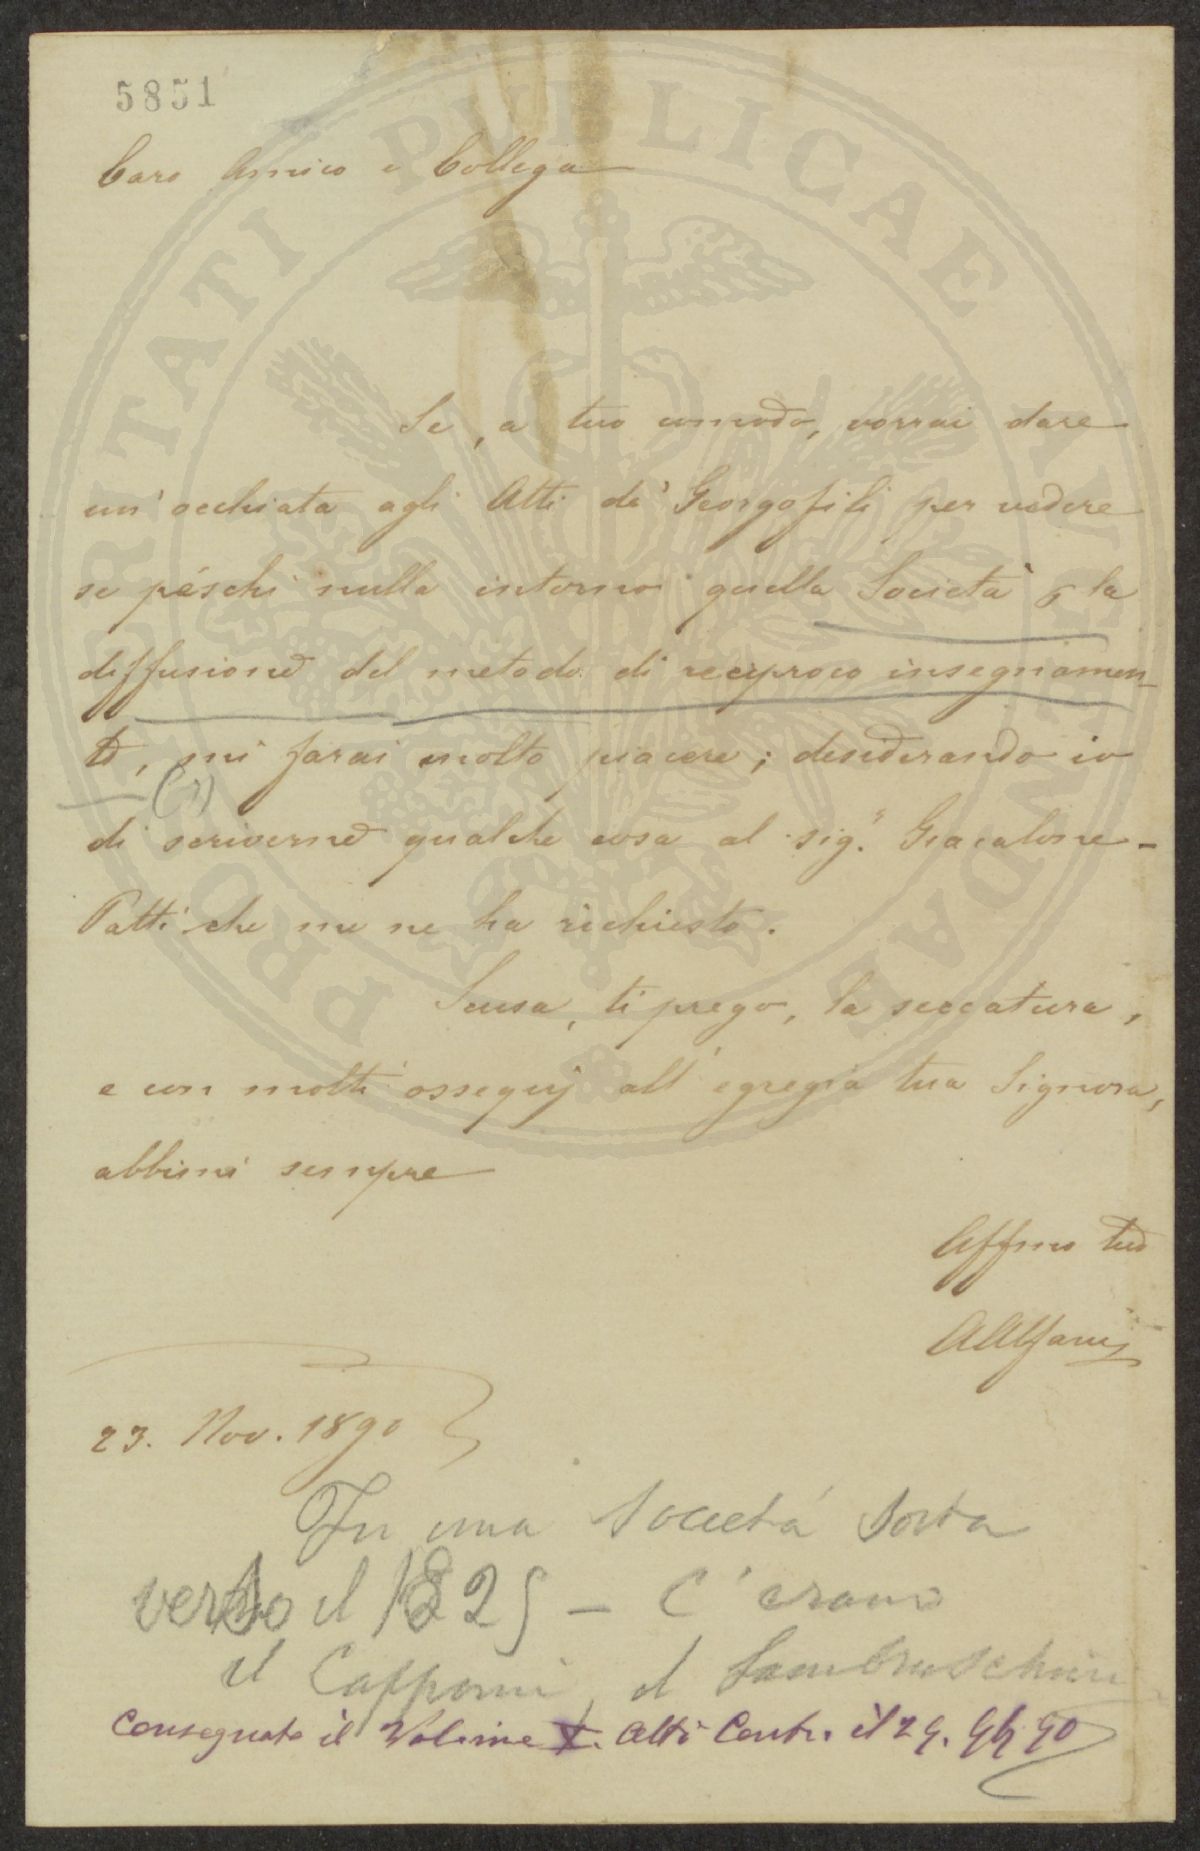 5851
Caro Amico e Collega
Se, a tuo comodo, vorrai dare
un'occhiata agli Atti de' Georgofili per vedere
se péschi nulla intorno quella Società p la
diffusione del metodo di reciproco insegnamen-
to, mi farai molto piacere; desiderando io
(1)
di scriverne qualche cosa al sig.r Giacalone-
Patti che me ne ha richiesto.
Scusa, ti prego, la seccatura,
e con molti ossequj all'egregia tua Signora,
abbimi sempre
Affmo tuo
AAlfani
23. Nov. 1890
Fu una Società sorta
verso il 1825 - C'erano
il Capponi, il Lambruschini
Consegnato il Volume X. Atti Cont. il 29. 9b 90
PROSPERITATI PUBLICAE AUGENDAE